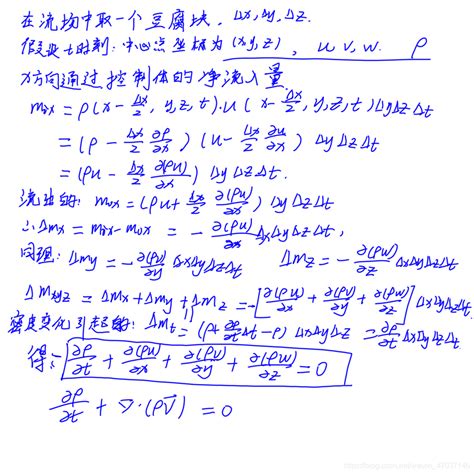 在流场中取一个豆腐块,Δx,Δy,Δz.
假设t时刻:中心点坐标为(x,y,z), u v, w. ρ
x方向通过控制体的净流入量.
m₀ᵢₓ = ρ(x-Δx/2, y,z,t)·u(x-Δx/2,y,z,t)ΔyΔzΔt
=(ρ - Δx/2 ∂ρ/∂x)(u - Δx/2 ∂u/∂x) ΔyΔzΔt
=(ρu - Δx/2 ∂(ρu)/∂x) ΔyΔzΔt.
流出的: m₀ₓ = (ρu + Δx/2 ∂(ρu)/∂x) ΔyΔzΔt
∴Δmx = m₀ᵢₓ - m₀ₓ = - ∂(ρu)/∂x ΔxΔyΔzΔt,
同理: Δmy = - ∂(ρv)/∂y ΔxΔyΔzΔt Δmz = - ∂(ρw)/∂z ΔxΔyΔzΔt
Δmxyz = Δmx+Δmy+Δmz = -[∂(ρu)/∂x + ∂(ρv)/∂y + ∂(ρw)/∂z] ΔxΔyΔzΔt
密度变化引起的: Δmt = (ρ+∂ρ/∂tΔt-ρ) ΔxΔyΔz = ∂ρ/∂tΔxΔyΔzΔt
得: ∂ρ/∂t + ∂(ρu)/∂x + ∂(ρv)/∂y + ∂(ρw)/∂z = 0
∂ρ/∂t + ∇·(ρV⃗) = 0